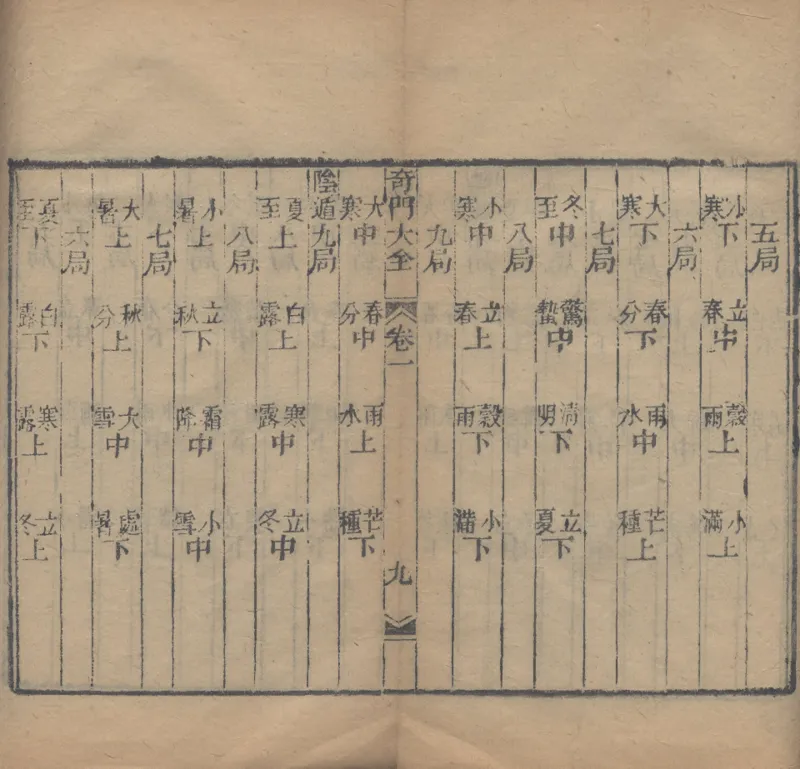 五局
小寒下 立春中 穀雨上 小滿上
六局
大寒下 春分下 雨水中 芒種上
七局
冬至中 驚蟄中 清明下 立夏下
八局
小寒中 立春上 穀雨下 小滿下
九局
奇門大全 卷一 九
大寒中 春分中 雨水上 芒種下
陰遁九局
夏至上 白露上 寒露中 立冬中
八局
小暑上 立秋下 霜降中 小雪中
七局
大暑上 秋分上 大雪中 處暑下
六局
夏至下 白露下 寒露上 立冬上